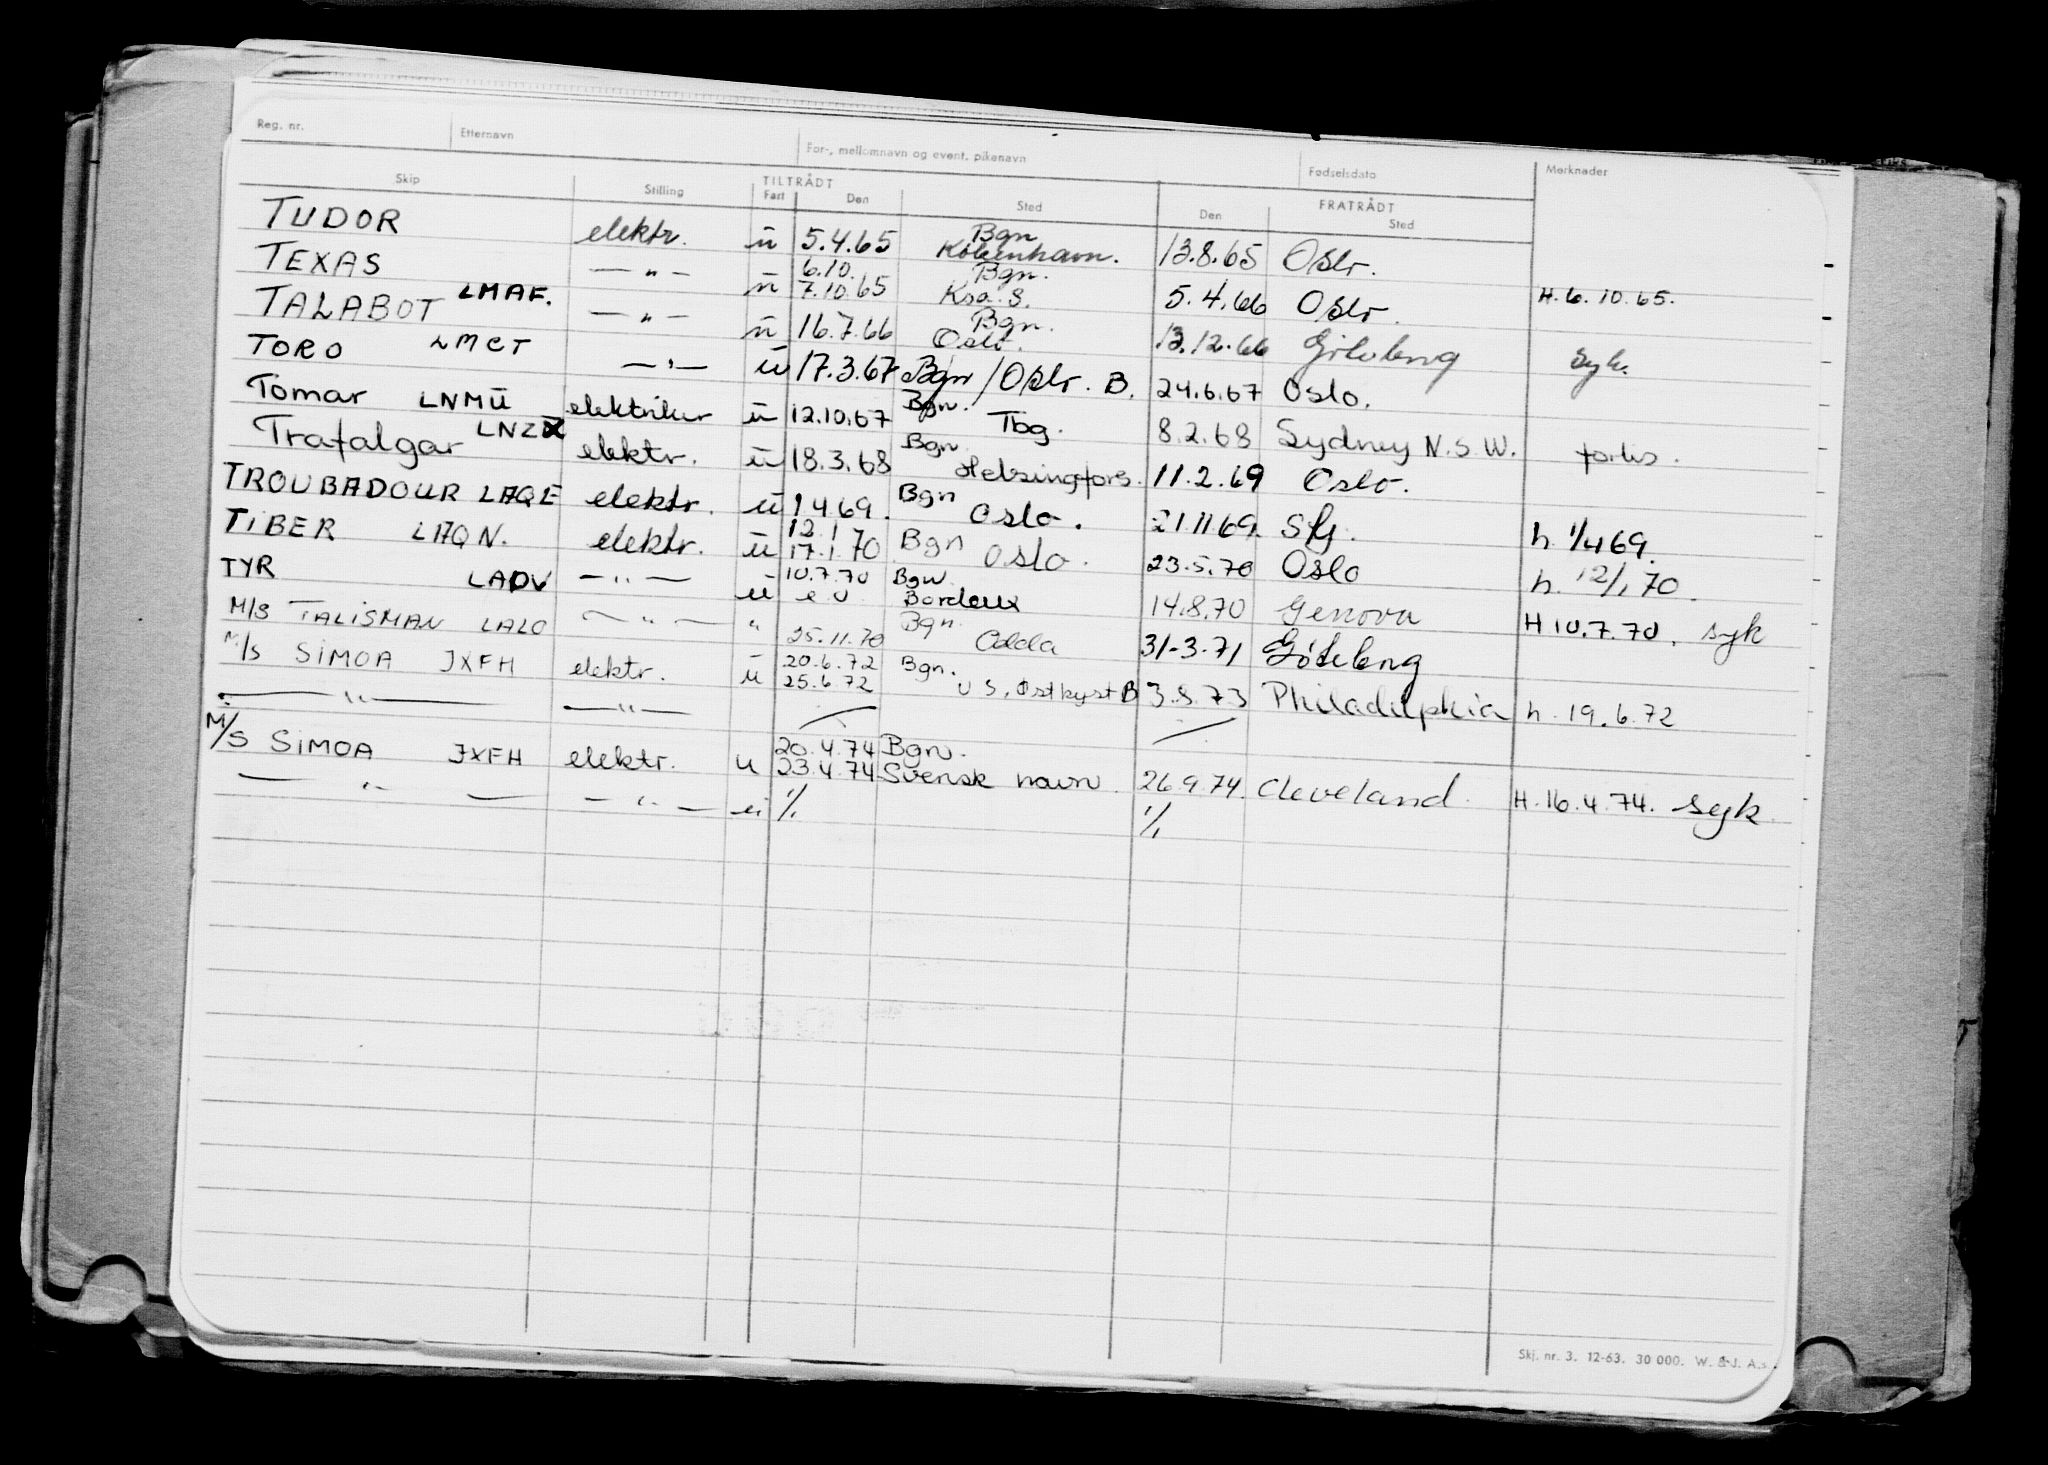 Reg. nr. Etternavn For-, mellomnavn og event. pikenavn Fødselsdato Merknader
Skip Stilling TILTRÅDT FRATRÅDT
Fart Den Sted Den Sted
TUDOR elektr. ū 5.4.65 Bgn København. 13.8.65 Oslo.
TEXAS — " — ū 6.10. 7.10.65 Bgn. Ksa. S. 5.4.66 Oslo. H. 6.10.65.
TALABOT LMAF. — " — ū 16.7.66 Bgn. Oslo. 13.12.66 Göteborg syk.
TORO LMCT — " — ū 17.3.67 Bgn/Oslo. B. 24.6.67 Oslo.
Tomar LNMU elektriker ū 12.10.67 Bgn. Tbg. 8.2.68 Sydney N.S.W.
Trafalgar LNZ elektr. ū 18.3.68 Bgn. Helsingfors. 11.2.69 Oslo.
TROUBADOUR LAQE elektr. ū 1 4 69. Bgn Oslo. 21.11.69. h. 1/4 69.
TIBER LAQN. elektr. ū 12.1 17.1.70 Bgn Oslo. 23.5.70 Oslo h. 12/1 70.
TYR LADV — " — ū 10.7.70 Bgn. Bordeux 14.8.70 Genova H 10.7.70. syk
M/S TALISMAN LALO — " — " 25.11.70 Bgn. Odda 31-3.71 Göteborg
M/S SIMOA JXFH elektr. u 20.6.72 25.6.72 Bgn. U S, Østkyst B 3.8.73 Philadelphia h. 19.6.72
— " — — " —
M/S SIMOA JXFH elektr. u 20.4.74 23.4.74 Bgn. Svensk havn. 26.9.74. Cleveland. H. 16.4.74. syk.
— " — — " — u 1/1 1/1
Skj. nr. 3. 12-63. 30 000. W. & J. A.s.